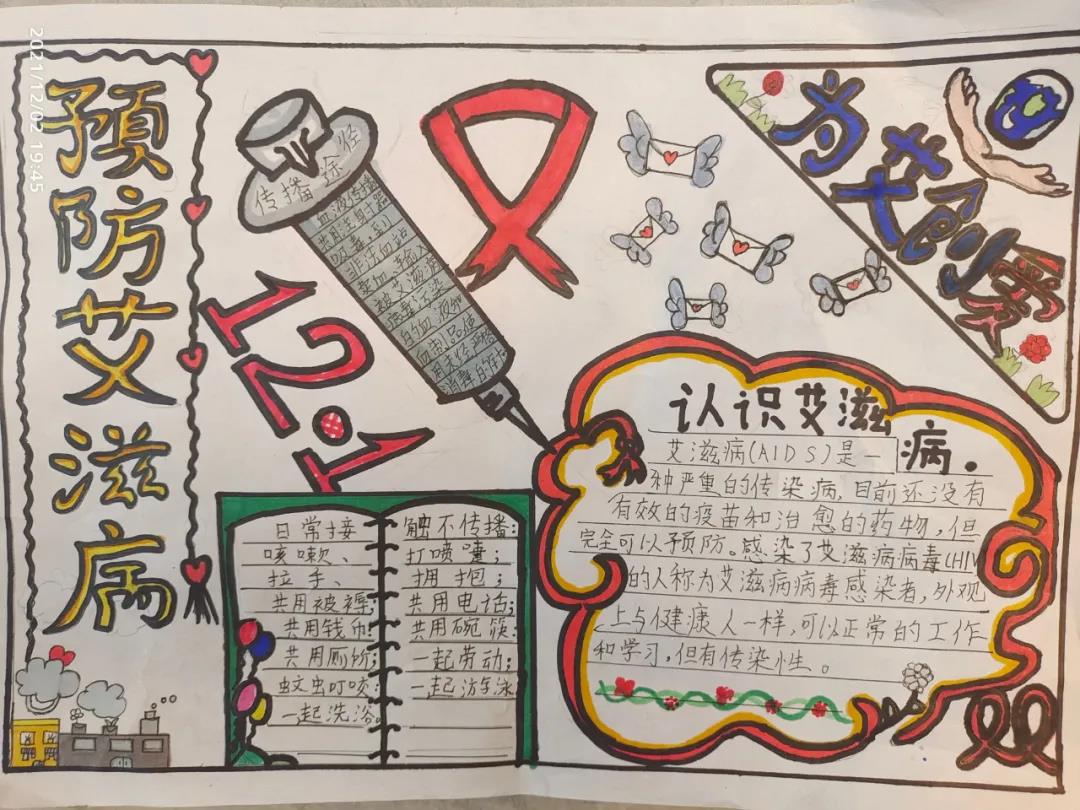 2021/12/02 19:45
预防艾滋病
12·1
传播途径
血液传播
共用注射器
吸毒,到
非法血站
卖血、输入
被艾滋病
病毒污染
的血液和
血制品使
用未经严格
消毒的
为艾创爱
认识艾滋病.
艾滋病(AIDS)是一
种严重的传染病,目前还没有
有效的疫苗和治愈的药物,但
完全可以预防。感染了艾滋病病毒(HIV
的人称为艾滋病病毒感染者,外观
上与健康人一样,可以正常的工作
和学习,但有传染性。
日常接触不传播:
咳嗽、打喷嚏;
拉手、拥抱;
共用被褥;共用电话;
共用钱币;共用碗筷:
共用厕所;一起劳动;
蚊虫叮咬:一起游泳
一起洗浴。